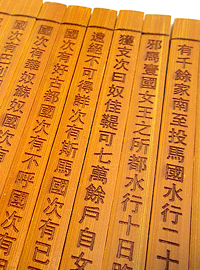 有千餘家南至投馬國水行二十
邪馬壹國女王之所都水行十日
獲支次曰奴佳鞮可七萬餘戶自女
遠絕不可得詳次有斯馬國次有已
國次有好古都國次有不呼國
國次有華奴蘇奴國次有
國次有巴利